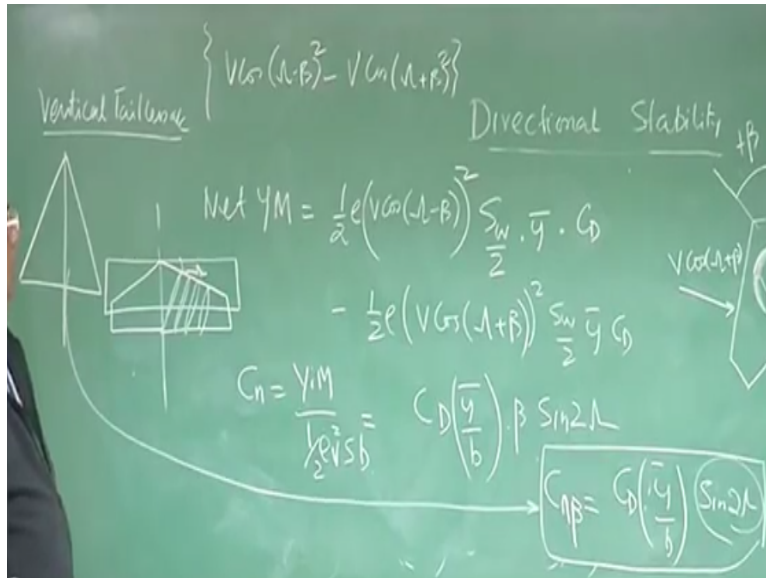 { VCos(Λ-β)² - VCos(Λ+β)² }
Vertical Tailless
Directional Stability
+β
Net YM = 1/2 ρ(VCos(Λ-β))² Sw/2 · ȳ · C_D
VCos(Λ+β)
- 1/2 ρ(VCos(Λ+β))² Sw/2 ȳ C_D
Cn = Y.M / 1/2 ρV²Sb = C_D (ȳ/b) · β Sin2Λ
Cnβ = C_D (ȳ/b) Sin2Λ